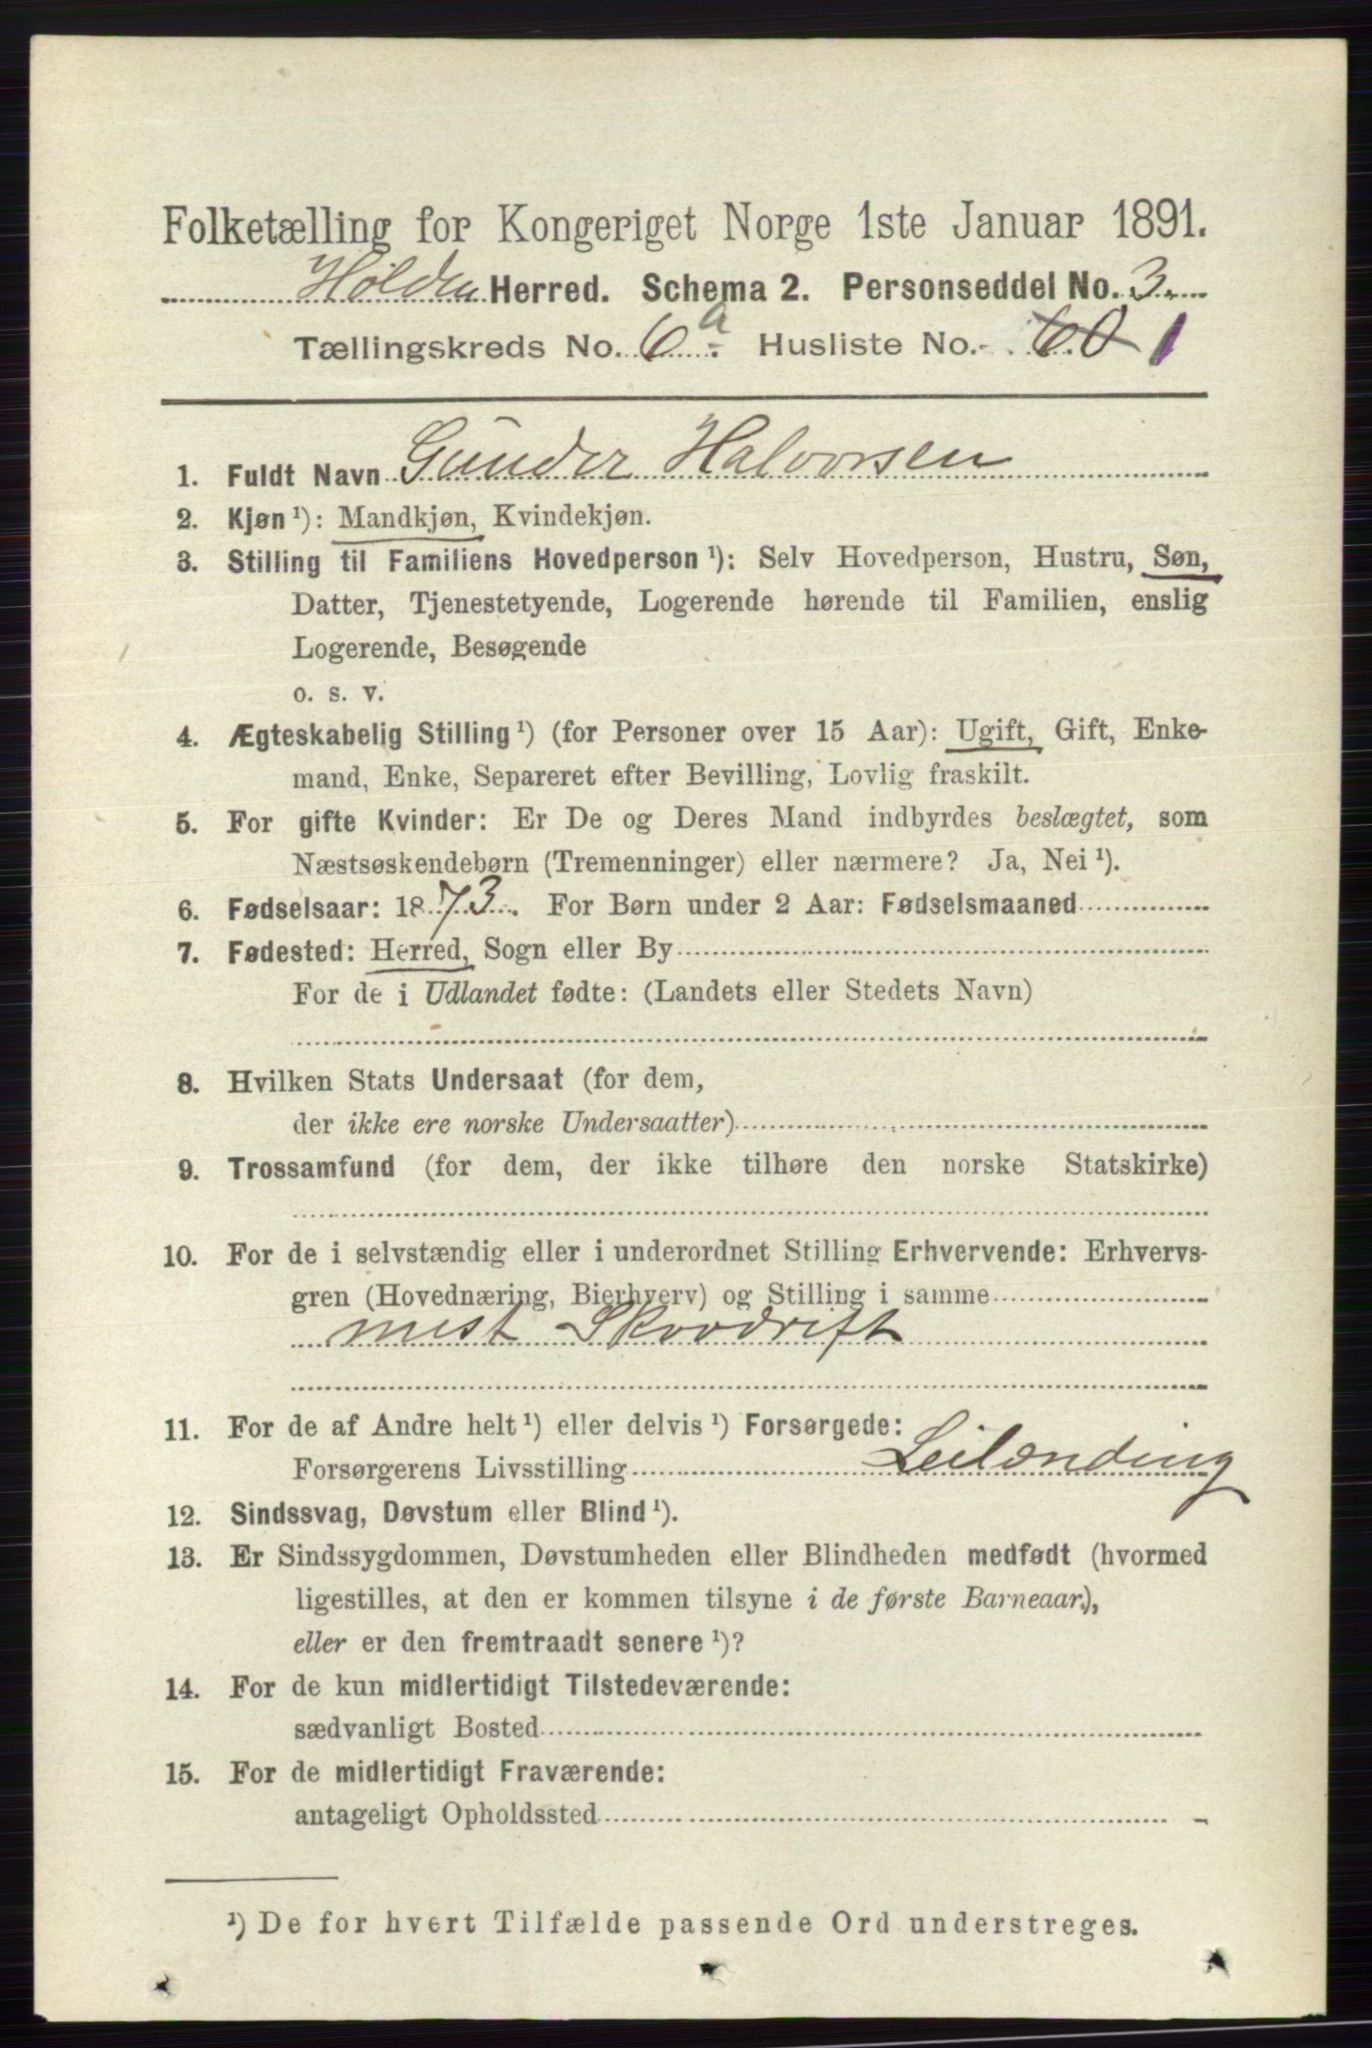 Folketælling for Kongeriget Norge 1ste Januar 1891.
Holden Herred. Schema 2. Personseddel No. 3.
Tællingskreds No. 6a. Husliste No. 60 1
1. Fuldt Navn Gunder Halvorsen
2. Kjøn¹): Mandkjøn, Kvindekjøn.
3. Stilling til Familiens Hovedperson¹): Selv Hovedperson, Hustru, Søn,
Datter, Tjenestetyende, Logerende hørende til Familien, enslig
Logerende, Besøgende
o. s. v.
4. Ægteskabelig Stilling¹) (for Personer over 15 Aar): Ugift, Gift, Enke-
mand, Enke, Separeret efter Bevilling, Lovlig fraskilt.
5. For gifte Kvinder: Er De og Deres Mand indbyrdes beslægtet, som
Næstsøskendebørn (Tremenninger) eller nærmere? Ja, Nei¹).
6. Fødselsaar: 1873. For Børn under 2 Aar: Fødselsmaaned
7. Fødested: Herred, Sogn eller By
For de i Udlandet fødte: (Landets eller Stedets Navn)
8. Hvilken Stats Undersaat (for dem,
der ikke ere norske Undersaatter)
9. Trossamfund (for dem, der ikke tilhøre den norske Statskirke)
10. For de i selvstændig eller i underordnet Stilling Erhvervende: Erhvervs-
gren (Hovednæring, Bierhverv) og Stilling i samme
mest Skovdrift
11. For de af Andre helt¹) eller delvis¹) Forsørgede:
Forsørgerens Livsstilling Leilænding
12. Sindssvag, Døvstum eller Blind¹).
13. Er Sindssygdommen, Døvstumheden eller Blindheden medfødt (hvormed
ligestilles, at den er kommen tilsyne i de første Barneaar),
eller er den fremtraadt senere¹)?
14. For de kun midlertidigt Tilstedeværende:
sædvanligt Bosted
15. For de midlertidigt Fraværende:
antageligt Opholdssted
¹) De for hvert Tilfælde passende Ord understreges.